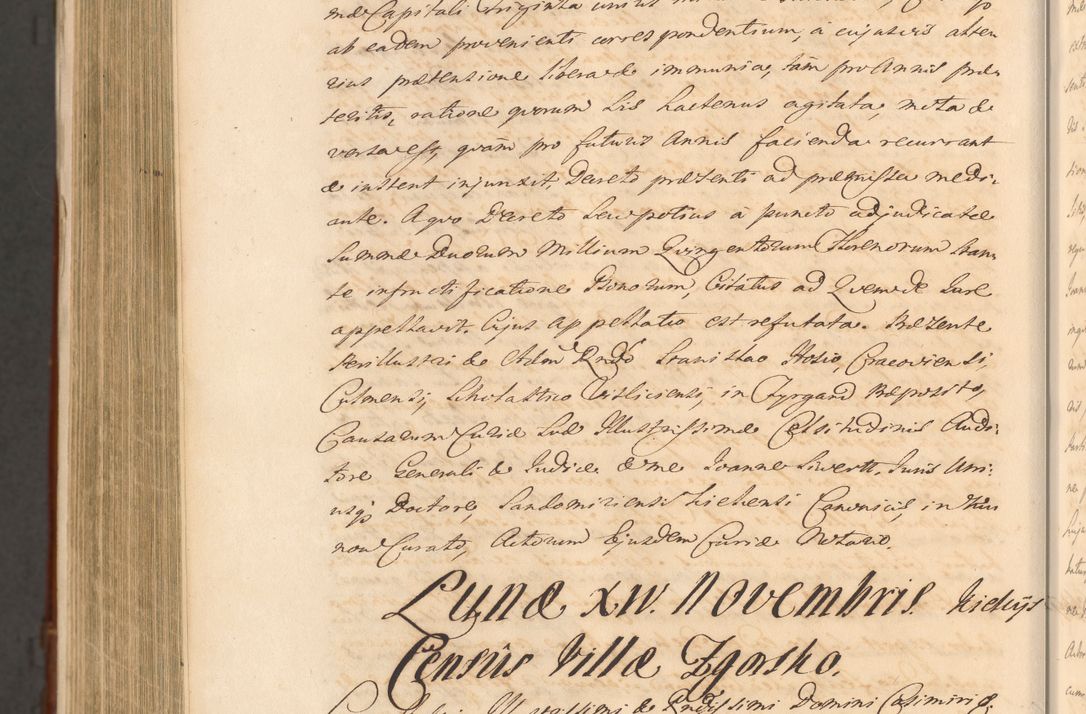 ab eadem provenienti correspondentium, a cujusvis alte
rius prætensione libera & immunia, tam pro Annis præ
teritis, ratione quorum Lis hactenus agitata, mota &
versa est, quam pro futuris Annis facienda recurrant
& instent injunxit, Decreto præsenti ad præmissa medi
ante. A quo Decreto seu potius a puncto adjudicatæ
Summæ Duorum Millium Qvingentorum Florenorum stan
te infructificatione Bonorum, Citatus ad Qvem de Iure
appellavit. Cujus appellatio est refutata. Præsente
Perillustri & Adm Rndo Stanislao Hosio, Cracoviensi,
Culmensi, Scholastico Visliciensi, in Præposito,
Causarum Curiæ Suæ Illustrissimæ Celsitudinis Audi
tore Generali & Iudice & me Ioanne Siwertt, Iuris Utri
usq Doctore, Sandomiriensi Kielcensi Canonico, in
now Curato, Actorum Ejusdem Curiæ Notario.
Lunæ XIV. Novembris Kielcijs
Censûs Villæ Zgorsko.
Illustrissimi & Rndissimi Domini Casimiri